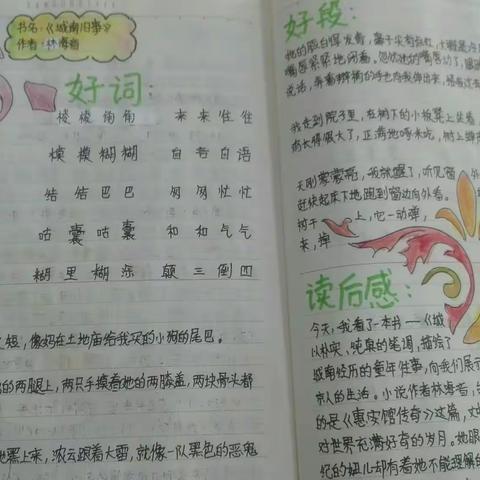 书名:《城南旧事》
作者:林海音
好词:
棱棱角角 来来往往
模模糊糊 自言自语
结结巴巴 匆匆忙忙
咕囊咕囊 和和气气
糊里糊涂 颠三倒四
短,像妈在土地庙给我买的小狗的尾巴。
的两腿上,两只手搂着她的两膝盖,两块骨头都
黑上来,浓云跟着大雷,就像一队黑色的恶鬼
好段:
她的脸白得发青,鼻子尖有点红
嘴唇紧紧地闭着。忽然她的嘴唇动了
说话,弄着辫梢的手也向我伸出来
我走到院子里,在树下的小板凳上坐着
天刚蒙蒙亮,我就醒了,听见窗外
赶快起床下地跑到窗边向外看。
树干上,它一动弹,
来,掉
读后感:
今天,我看了一本书——《城
以朴实、纯真的笔调,描绘了
城南经历的童年往事,向我们展示
京人的生活。小说作者林海音,
的是《惠安馆传奇》这篇,文中
对世界充满好奇的岁月。她跟
纪的妞儿却有着她不能理解的